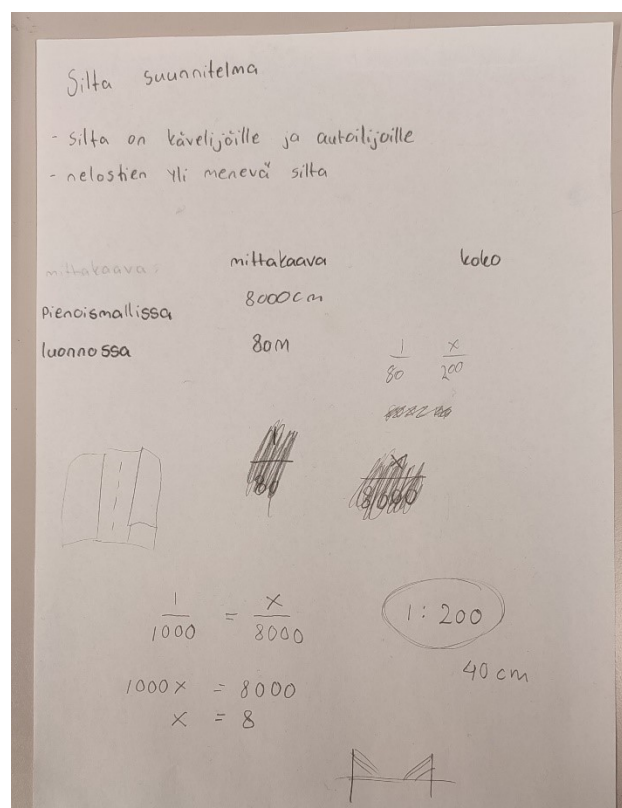 Silta suunnitelma
- silta on kävelijöille ja autoilijoille
- nelostien yli menevä silta
mittakaava:
mittakaava koko
Pienoismallissa 8000cm
luonnossa 80m
1/80 x/200
1/1000 = x/8000
1000x = 8000
x = 8
1:200
40 cm